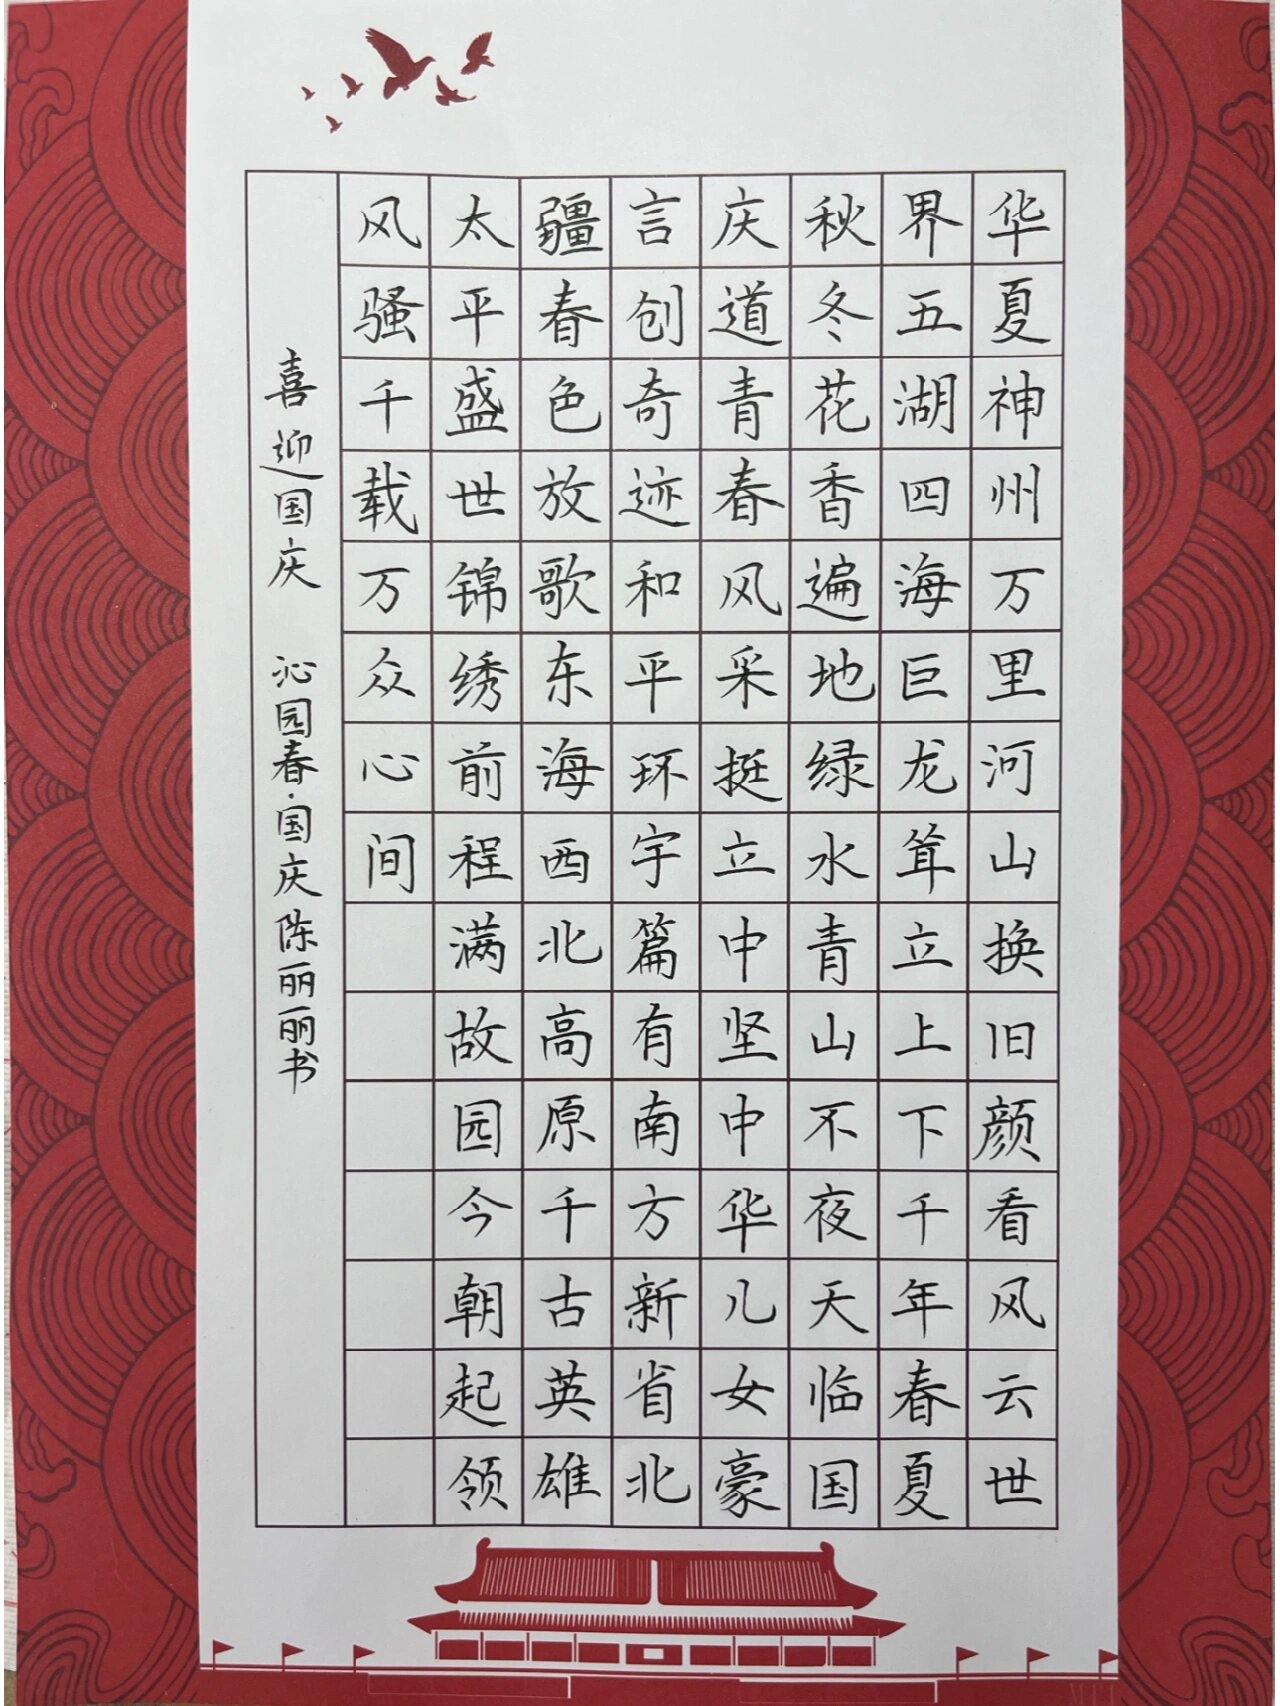 华夏神州万里河山换旧颜看风云世
界五湖四海巨龙耸立上下千年春夏
秋冬花香遍地绿水青山不夜天临国
庆道青春风采挺立中坚中华儿女豪
言创奇迹和平环宇篇有南方新省北
疆春色放歌东海西北高原千古英雄
太平盛世锦绣前程满故园今朝起领
风骚千载万众心间
喜迎国庆 沁园春·国庆陈丽丽书